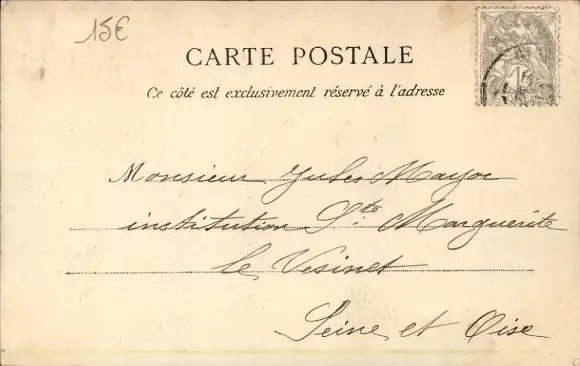 15€
CARTE POSTALE
Ce côté est exclusivement réservé à l'adresse
Monsieur Jules Mayor
institution Ste Marguerite
le Vesinet
Seine et Oise